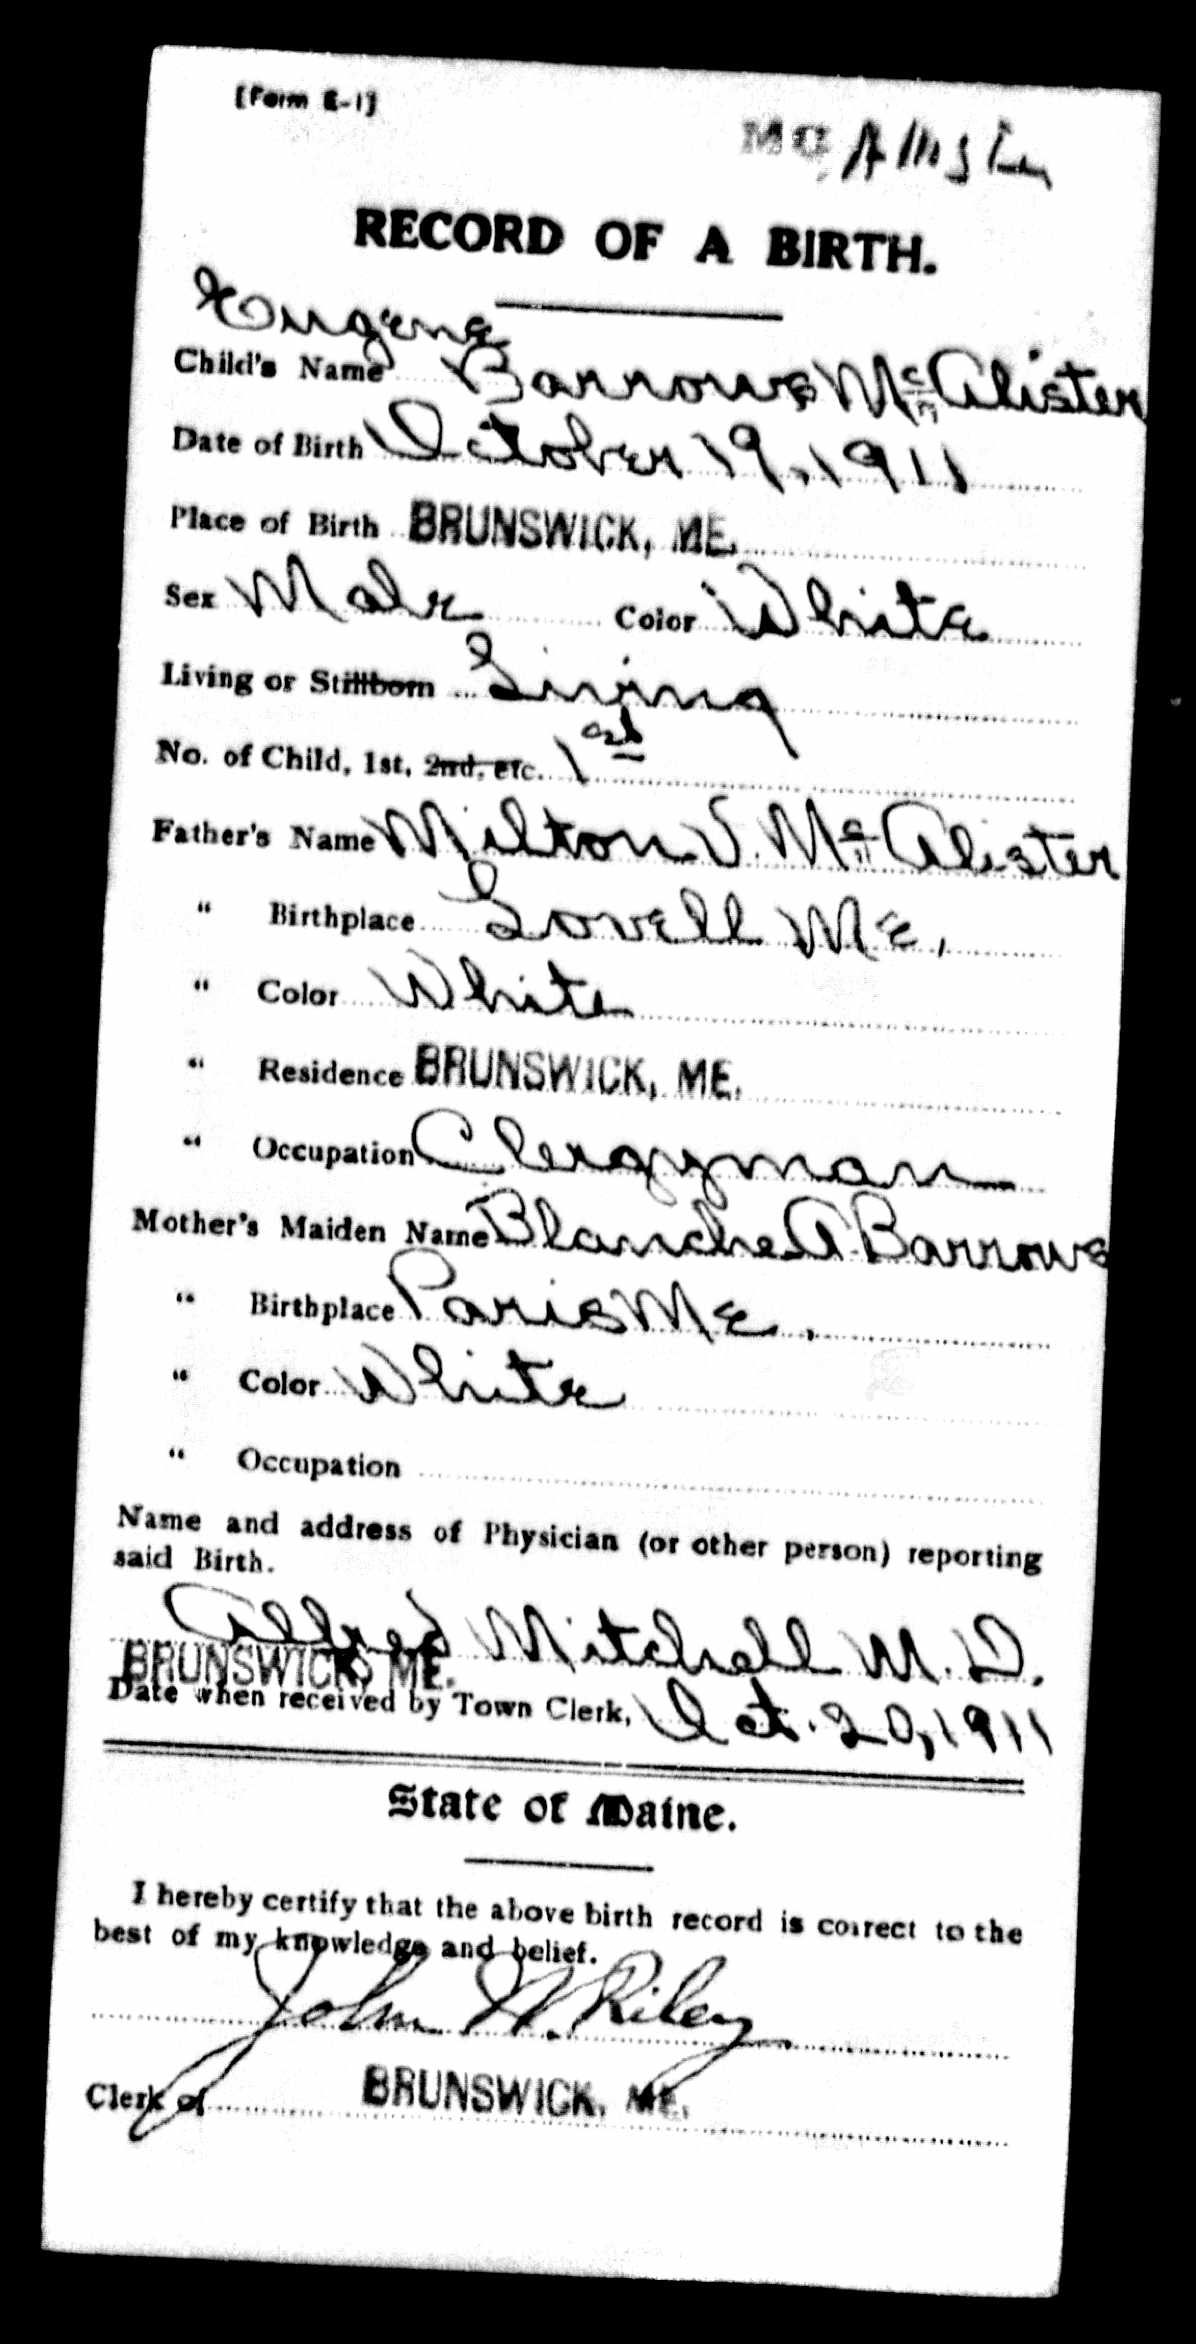 [Form E-1]
MC Alister
RECORD OF A BIRTH.
Eugene
Child's Name Barrows McAlister
Date of Birth October 19, 1911
Place of Birth BRUNSWICK, ME.
Sex Male Color White
Living or Stillborn Living
No. of Child, 1st, 2nd, etc. 1st
Father's Name Milton V. McAlister
" Birthplace Lovell Me.
" Color White
" Residence BRUNSWICK, ME.
" Occupation Clergyman
Mother's Maiden Name Blanche A Barrows
" Birthplace Paris Me.
" Color White
" Occupation
Name and address of Physician (or other person) reporting
said Birth.
Alfred Mitchell M.D.
BRUNSWICK, ME.
Date when received by Town Clerk, Oct. 20, 1911
State of Maine.
I hereby certify that the above birth record is correct to the
best of my knowledge and belief.
John W. Riley
Clerk of BRUNSWICK, ME.